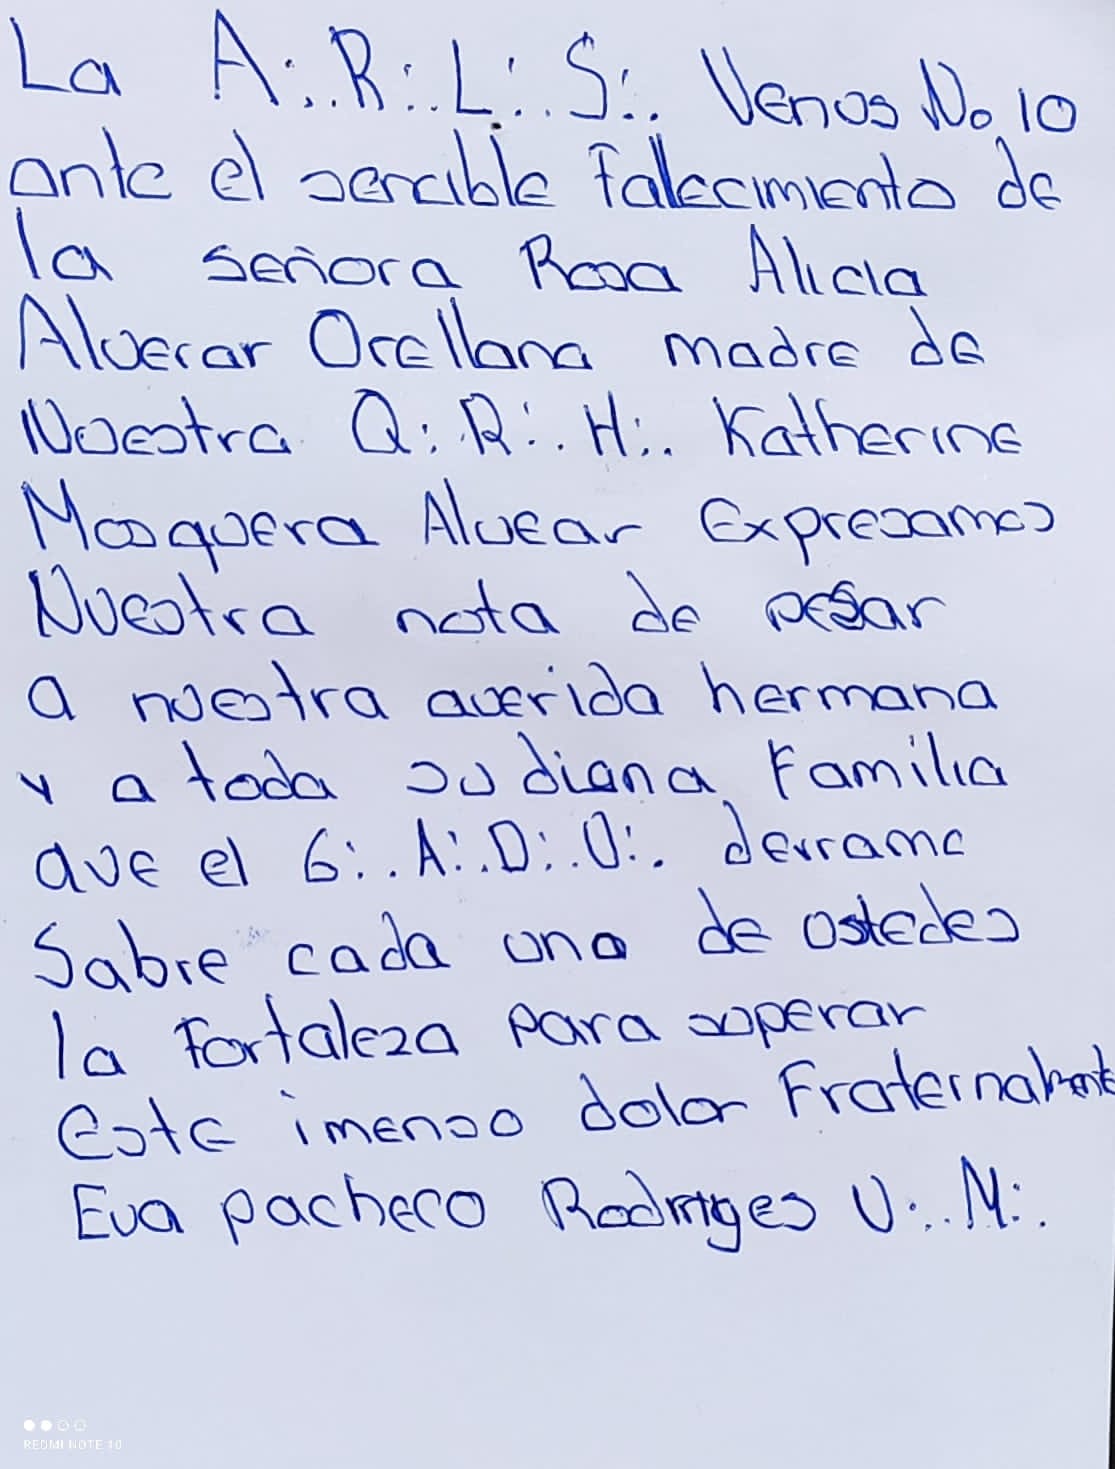 La A∴R∴L∴S∴ Venus No 10
ante el sencible fallecimiento de
la señora Rosa Alicia
Alverar Orellana madre de
Nuestra Q∴R∴H∴ Katherine
Mosquera Alvear Expresamos
Nuestra nota de pesar
a nuestra querida hermana
y a toda su digna Familia
que el G∴A∴D∴U∴ derrame
Sobre cada uno de ustedes
la Fortaleza para superar
Este imenso dolor Fraternalmente
Eva pacheco Rodriges V∴M∴
REDMI NOTE 10